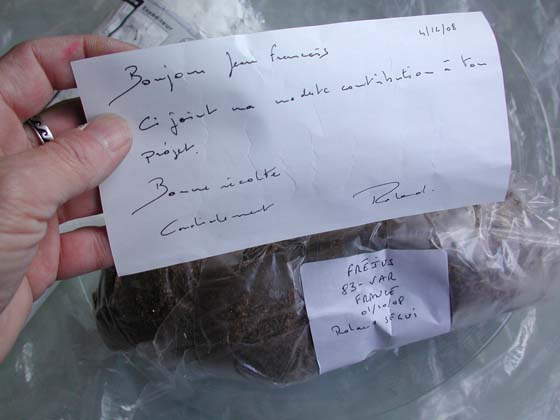 4/12/08
Bonjour Jean François
Ci joint ma modeste contribution à ton
projet.
Bonne récolte
Cordialement Roland.
FRÉJUS
83-VAR
FRANCE
01/10/08
Roland SEGUI